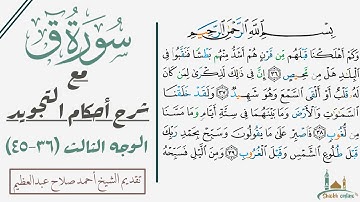 سورة ق
مع
شرح أحكام التجويد
الوجه الثالث (٣٦-٤٥)
تقديم الشيخ أحمد صلاح عبدالعظيم
بِسْمِ اللَّهِ الرَّحْمَٰنِ الرَّحِيمِ
وَكَمْ أَهْلَكْنَا قَبْلَهُم مِّن قَرْنٍ هُمْ أَشَدُّ مِنْهُم بَطْشًا فَنَقَّبُوا۟ فِى
ٱلْبِلَٰدِ هَلْ مِن مَّحِيصٍ ٣٦ إِنَّ فِى ذَٰلِكَ لَذِكْرَىٰ لِمَن كَانَ
لَهُۥ قَلْبٌ أَوْ أَلْقَى ٱلسَّمْعَ وَهُوَ شَهِيدٌ ٣٧ وَلَقَدْ خَلَقْنَا
ٱلسَّمَٰوَٰتِ وَٱلْأَرْضَ وَمَا بَيْنَهُمَا فِى سِتَّةِ أَيَّامٍ وَمَا مَسَّنَا
مِن لُّغُوبٍ ٣٨ فَٱصْبِرْ عَلَىٰ مَا يَقُولُونَ وَسَبِّحْ بِحَمْدِ رَبِّكَ
قَبْلَ طُلُوعِ ٱلشَّمْسِ وَقَبْلَ ٱلْغُرُوبِ ٣٩ وَمِنَ ٱلَّيْلِ فَسَبِّحْهُ
Shiekh online